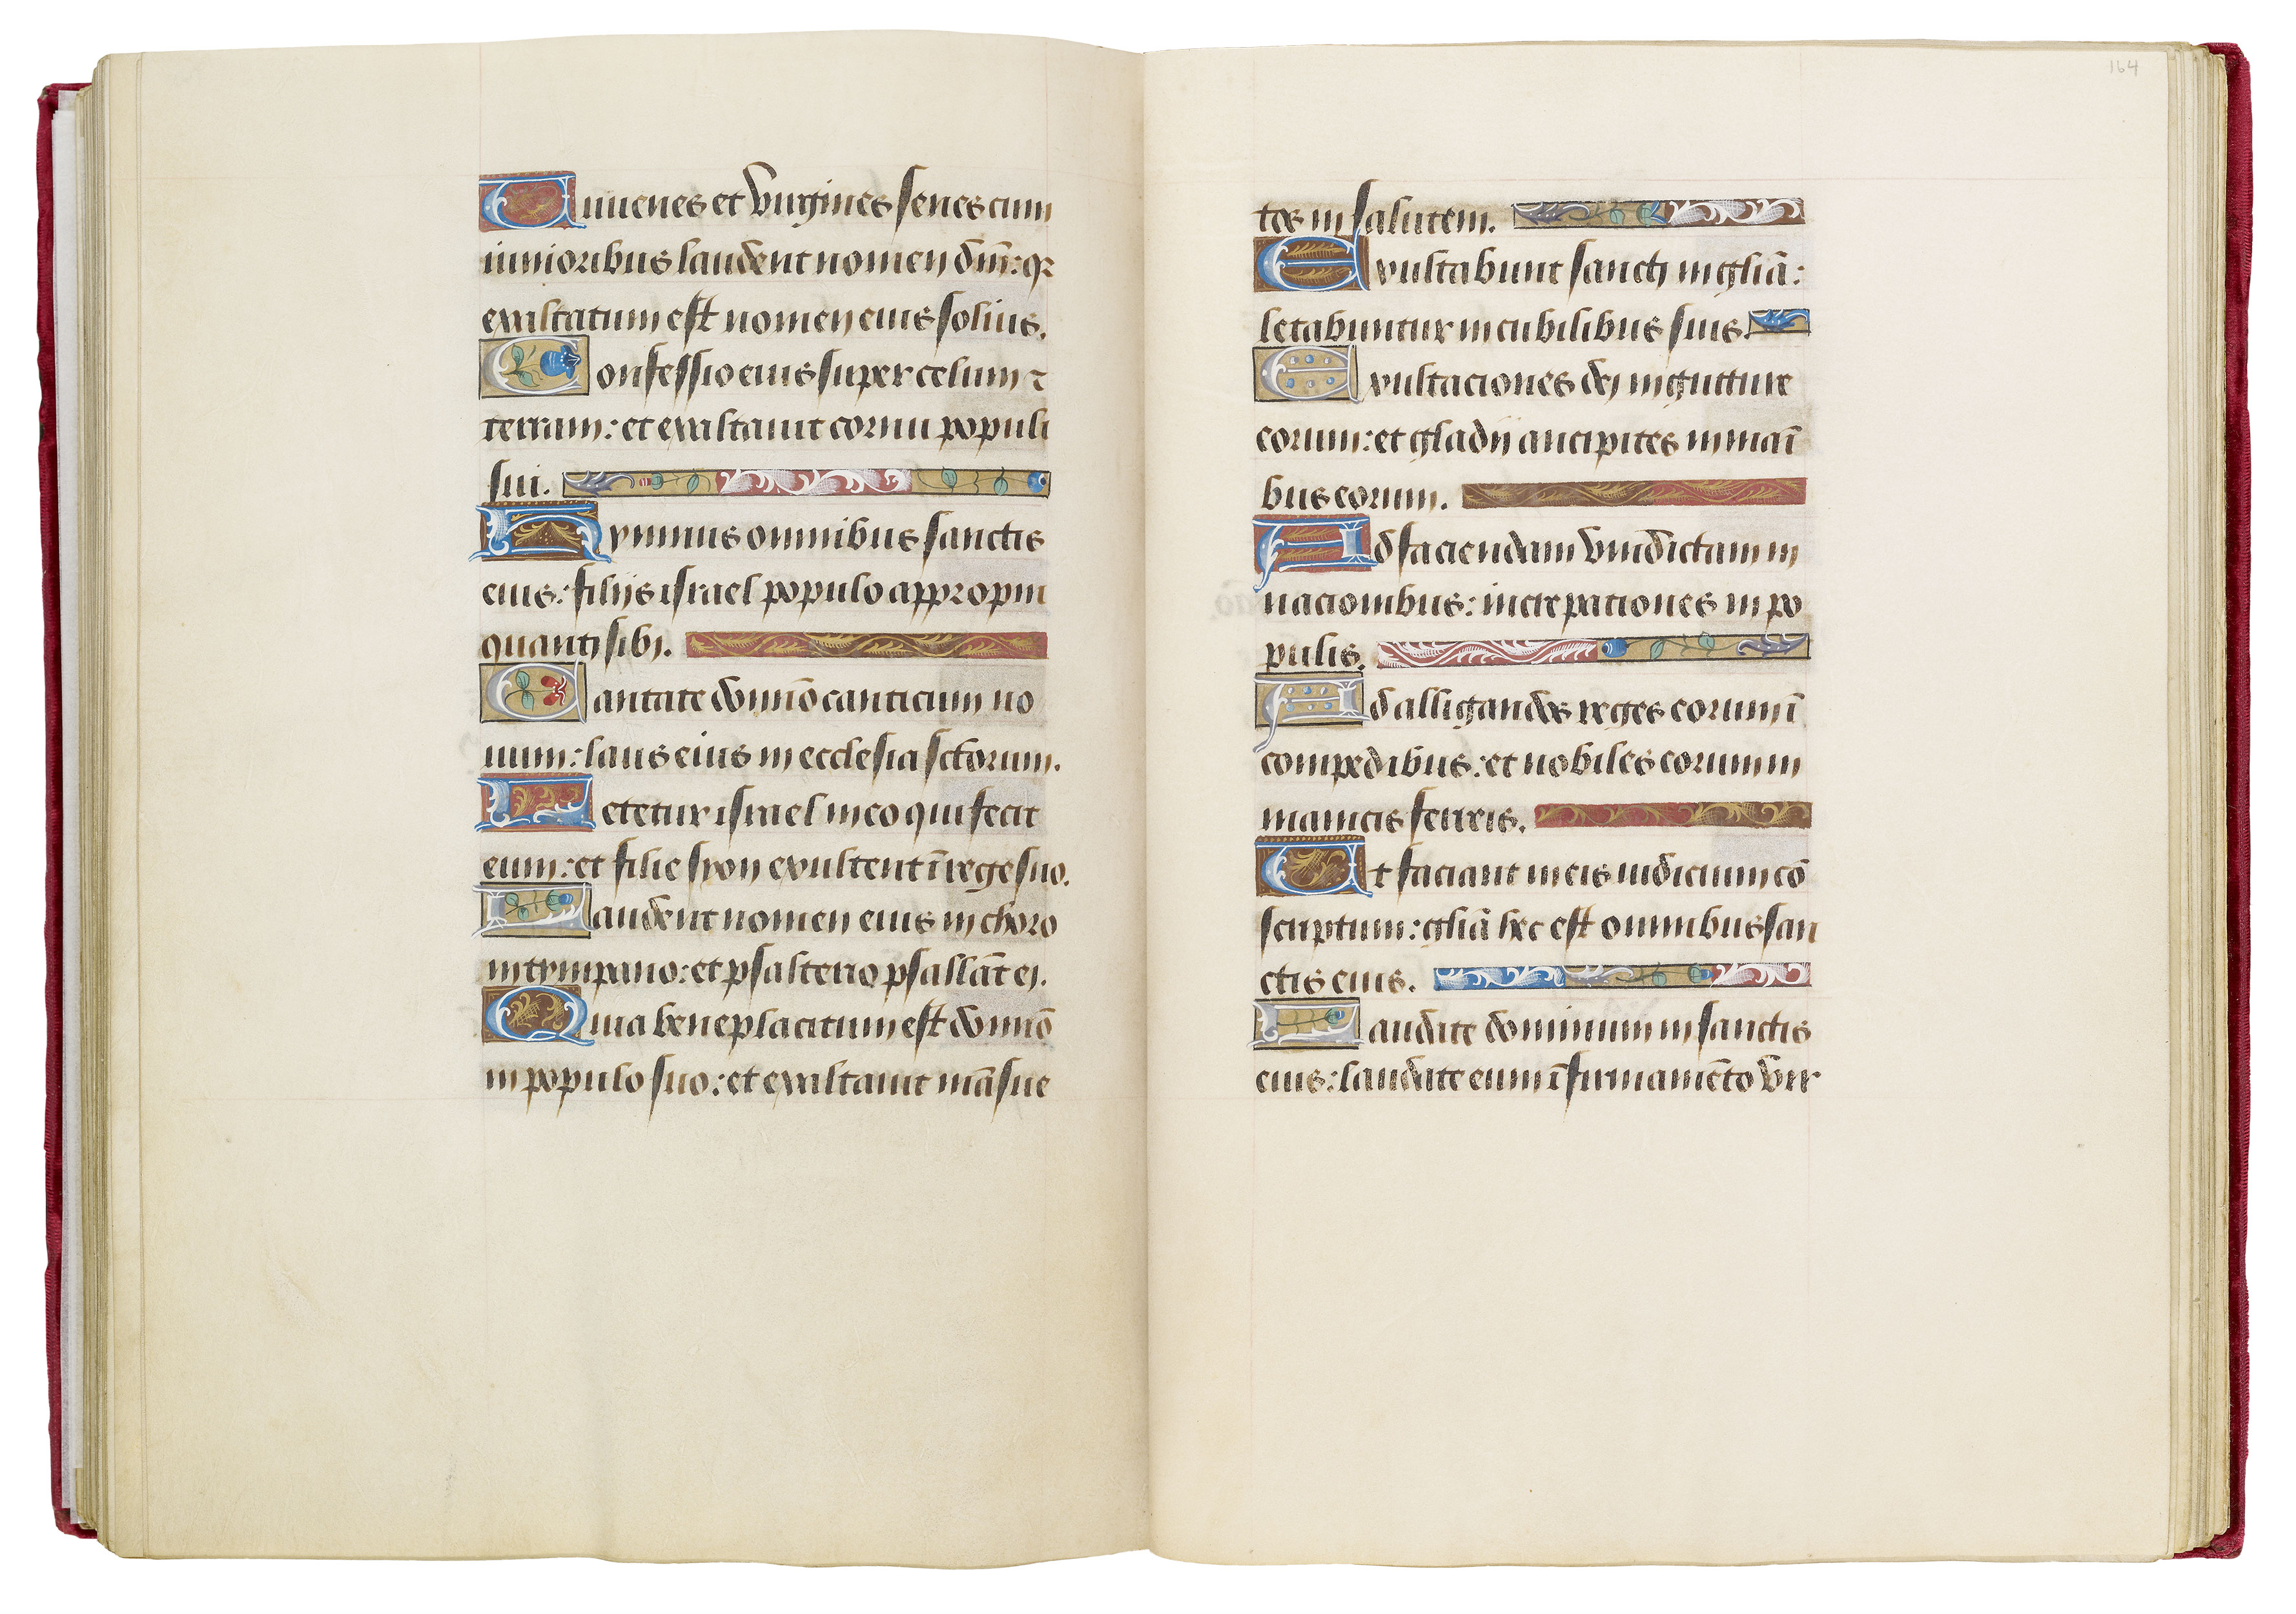 Iuuenes et virgines senes cum
iunioribus laudent nomen dnī: qꝛ
exaltatum est nomen eius solius.
Confessio eius super celum ⁊
terram: et exaltauit cornu populi
sui.
Hymnus omnibus sanctis
eius: filijs israel populo appropin
quanti sibi.
Cantate domīo canticum no
uum: laus eius in ecclesia sctorum.
Letetur israel in eo qui fecit
eum: et filie syon exultent ī rege suo.
Laudent nomen eius in choro
in tympano: et psalterio psallāt ei.
Quia beneplacitum est domīo
in populo suo: et exaltauit māsue
164
tos in salutem.
Exultabunt sancti in gliā:
letabuntur in cubilibus suis.
Exultaciones dei in gutture
eorum: et gladij ancipites in maī
bus eorum.
Ad faciendam vindictam in
nacionibus: increpationes in po
pulis.
Ad alligandos reges eorum ī
compedibus: et nobiles eorum in
manicis ferreis.
Ut faciant in eis iudicium cō
scriptum: gliā hec est omnibus san
ctis eius.
Laudate dominum in sanctis
eius: laudate eum ī firmamēto vir